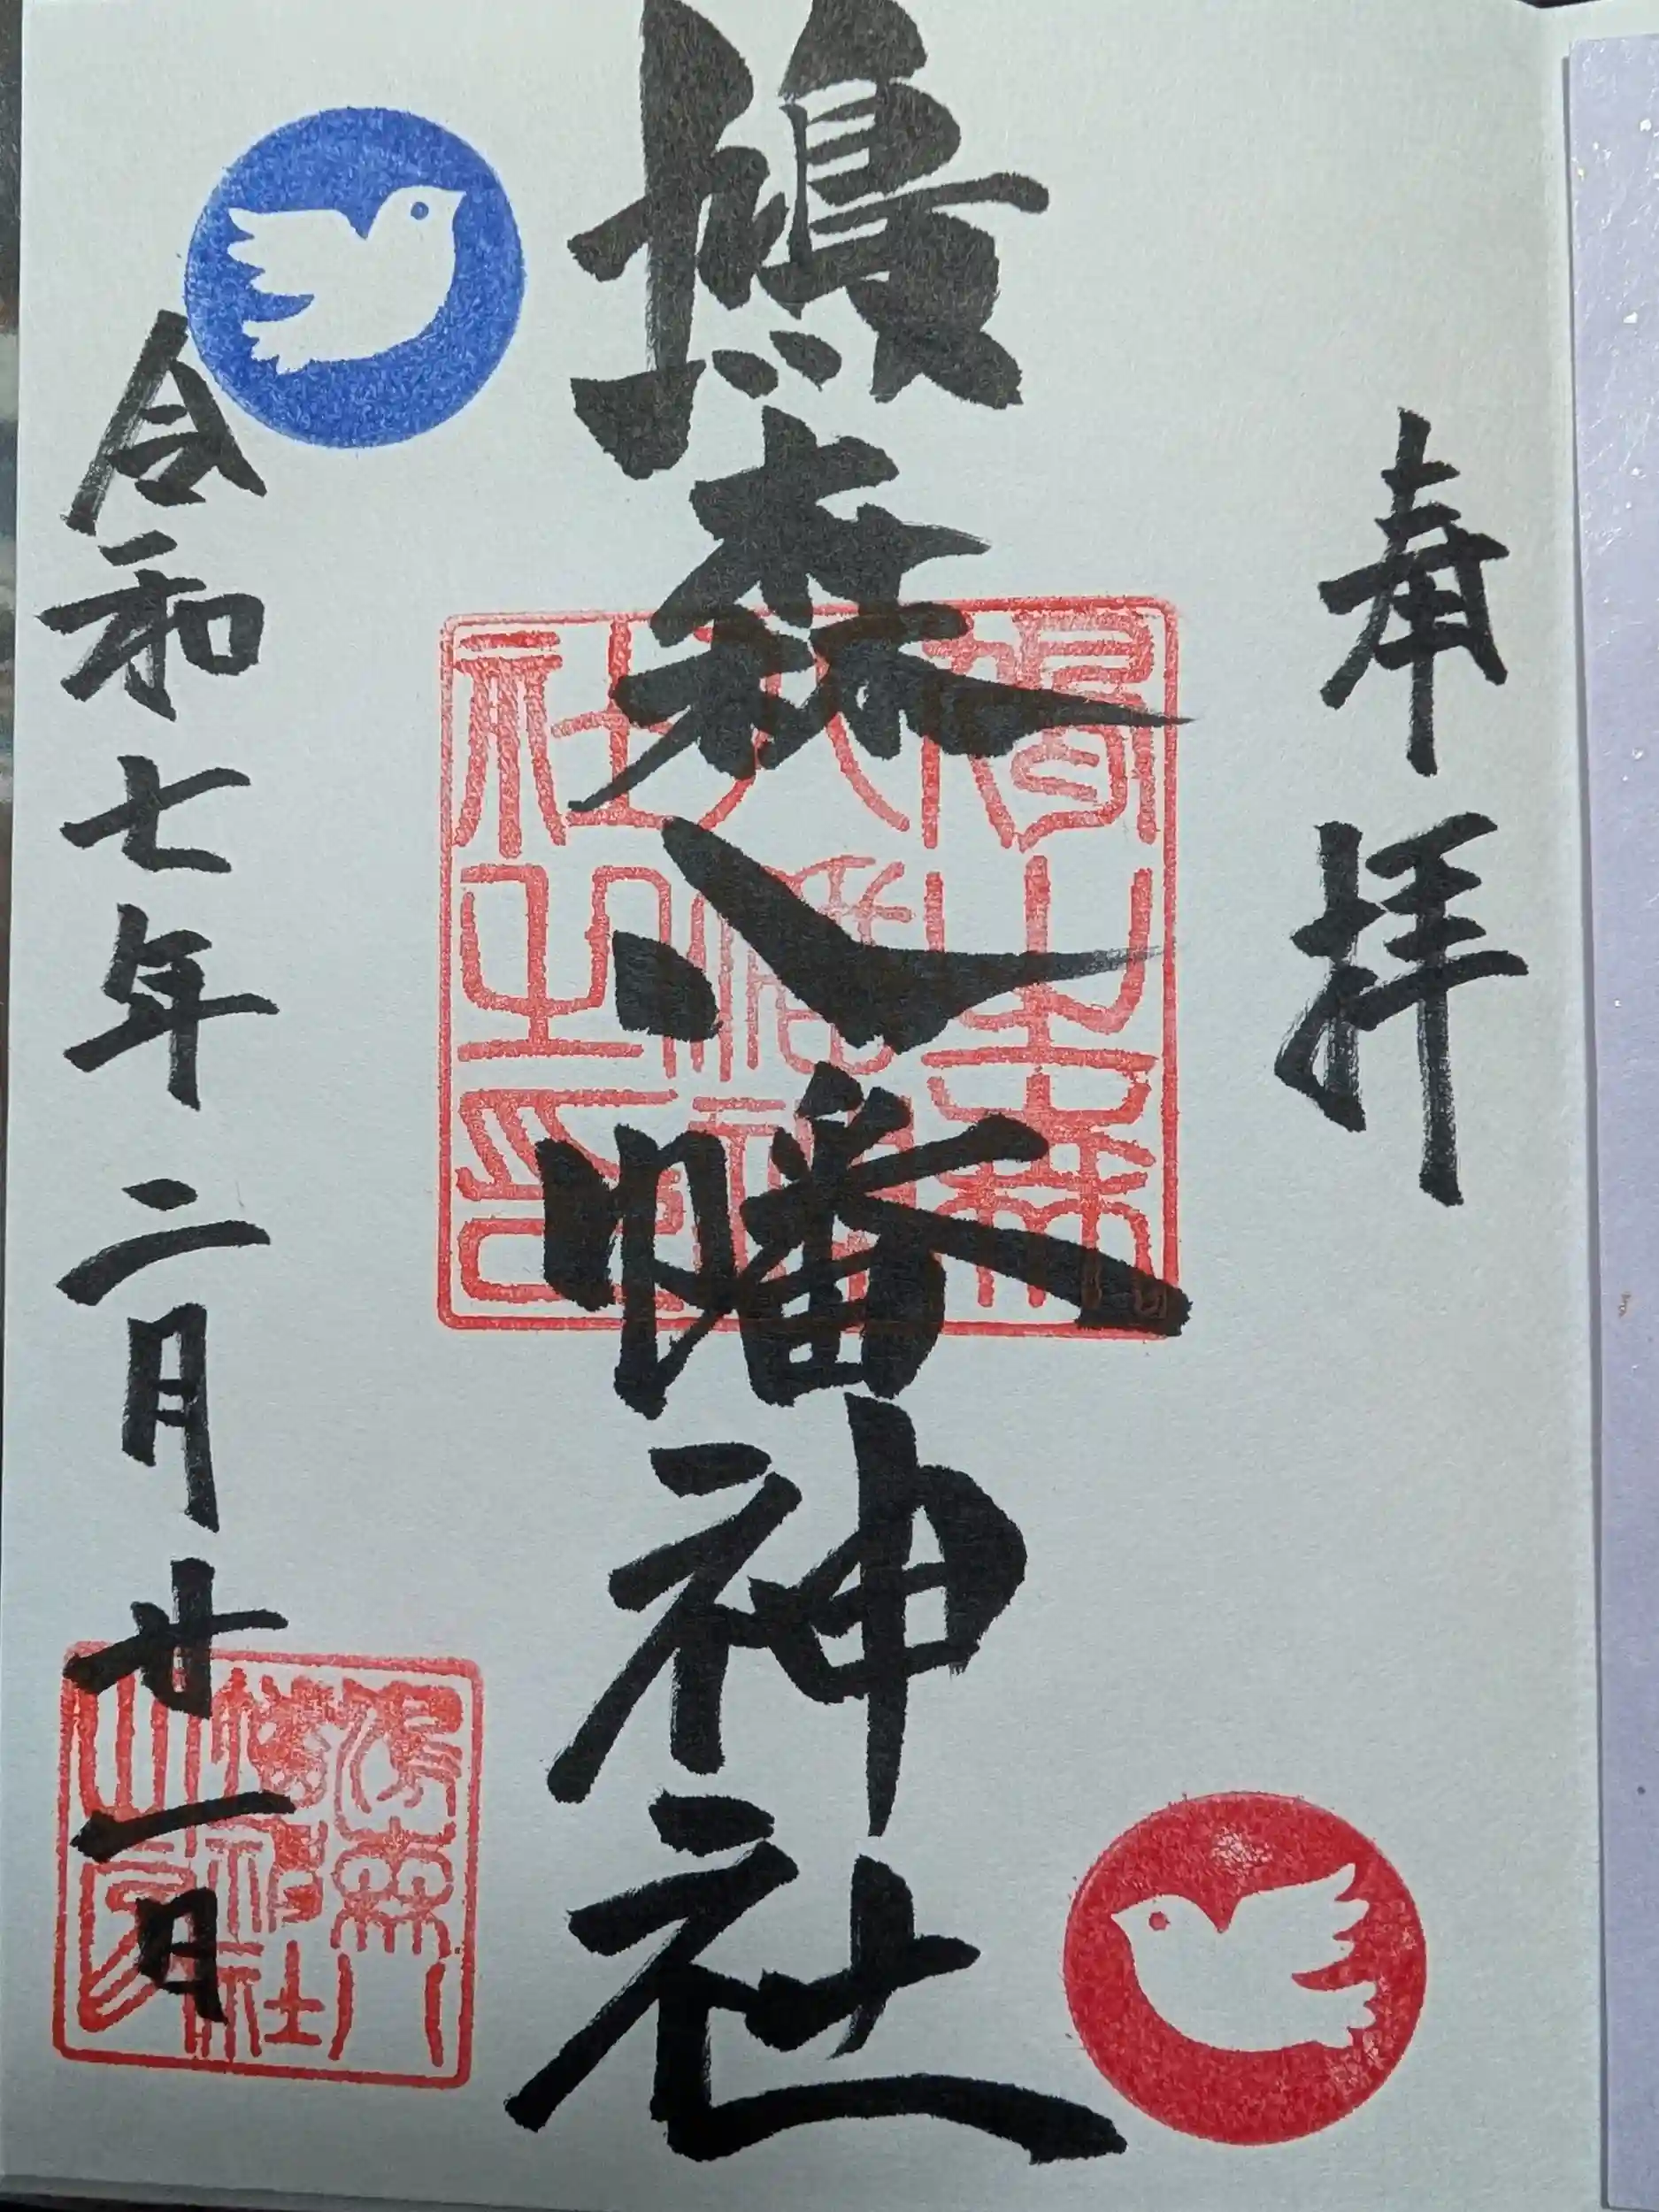 奉拝
鳩森八幡神社
令和七年二月廿一日
鳩之森八幡神社之印